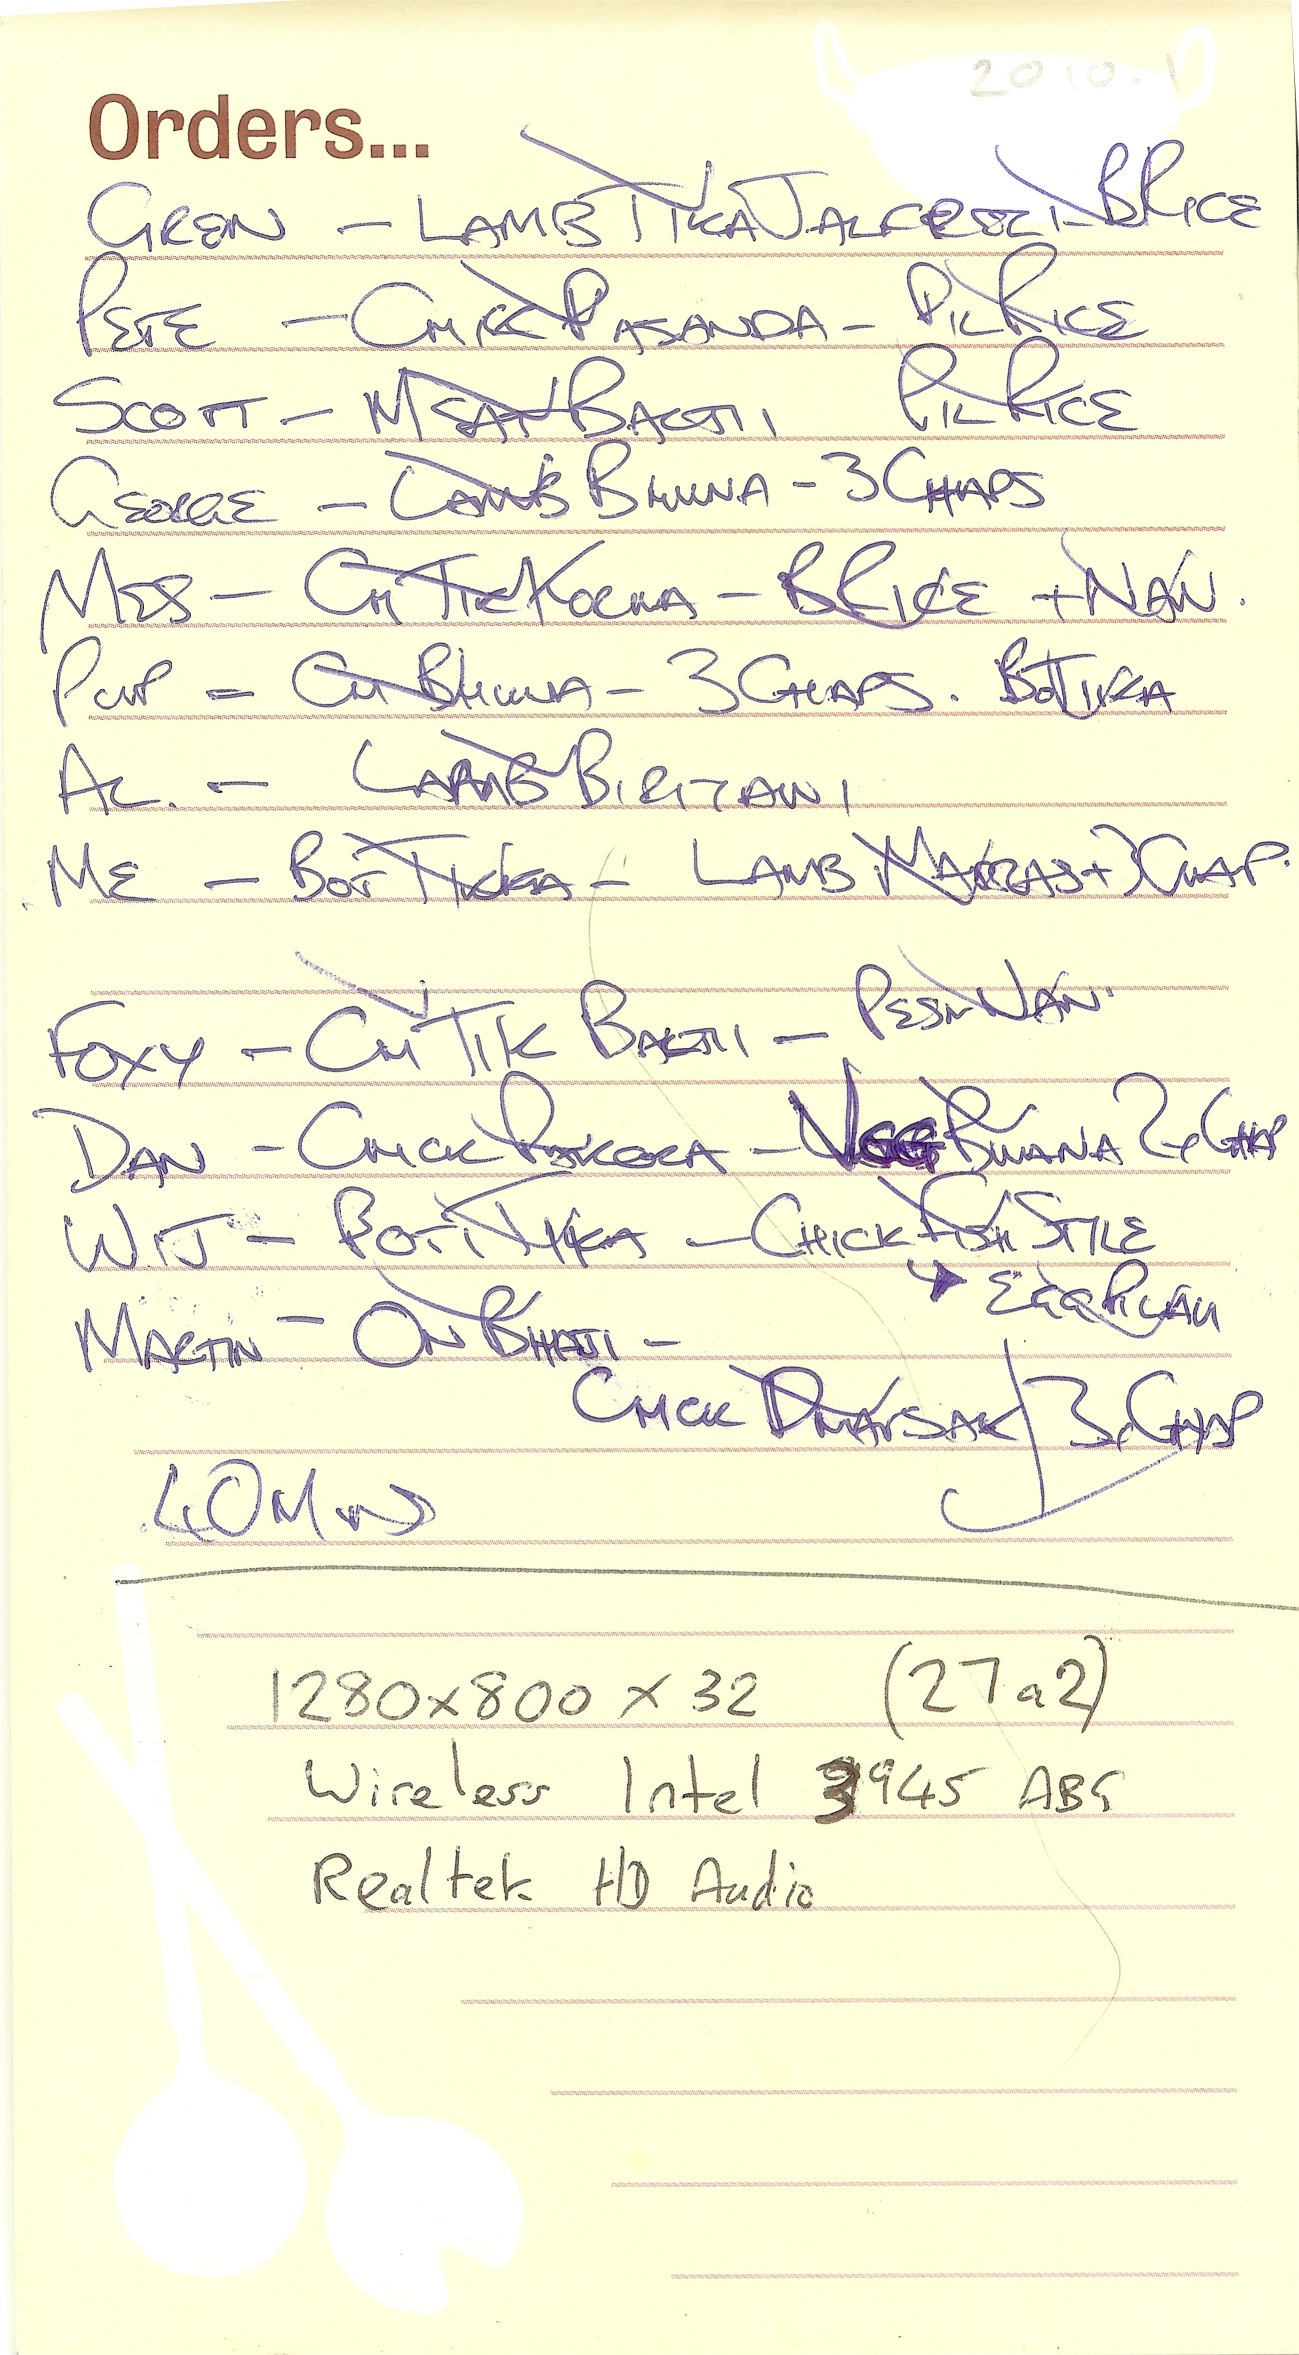 2010.1
Orders...
GREN - LAMB TIKA JALFREZI - B RICE
PETE - CHICK PASANDA - PIL RICE
SCOTT - MEAT BALTI PIL RICE
GEORGE - LAMB BHUNA - 3 CHAPS
MES - CH TIK KORMA - B RICE + NAN.
= CH BHUNA - 3 CHAPS. BOTI TIKA
AL. - LAMB BIRIYANI
ME - BOTI TIKKA - LAMB MADRAS + 3 CHAP.
FOXY - CH TIK BALTI - PESH NAN
DAN - CHICK PAKORA - VEG BHUANA 2 CHAP
WIJ - BOTI TIKKA - CHICK FISH STILE
→ EGG PILAU
MARTIN - ON BHAJI -
CHICK DHANSAK 3 CHAP
40 MINS
1280x800 x 32 (27 a 2)
Wireless Intel 3945 ABG
Realtek HD Audio